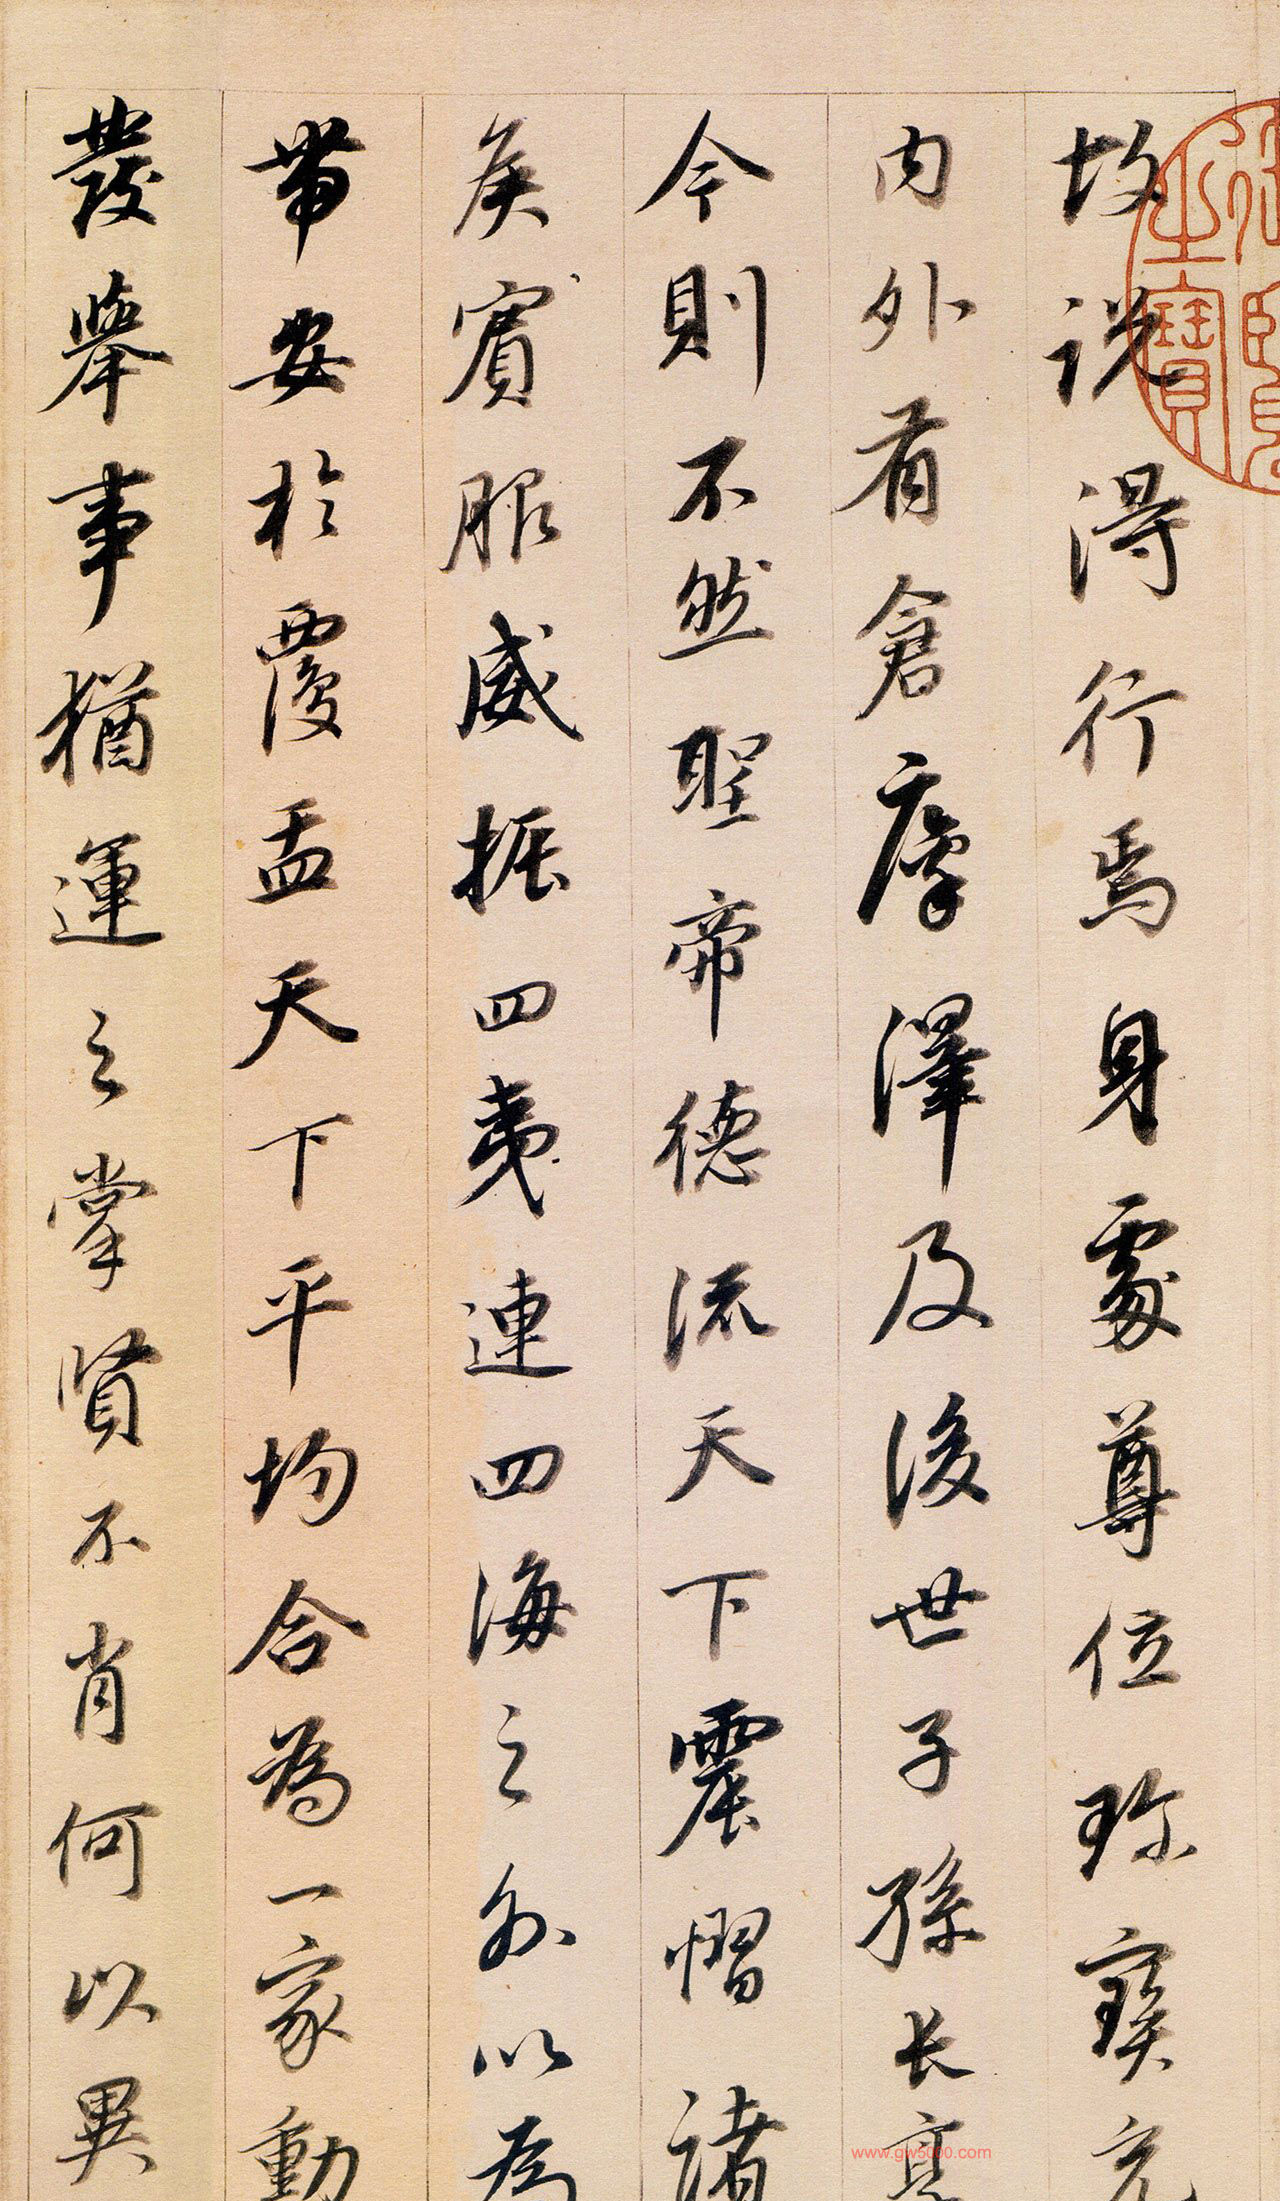 故説得行焉身處尊位珍寶充
内外有倉廩澤及後世子孫長享
今則不然聖帝德流天下震慴諸
矦賓服威振四夷連四海之外以為
帶安於覆盂天下平均合為一家動
發舉事猶運之掌賢不肖何以異
www.gw5000.com